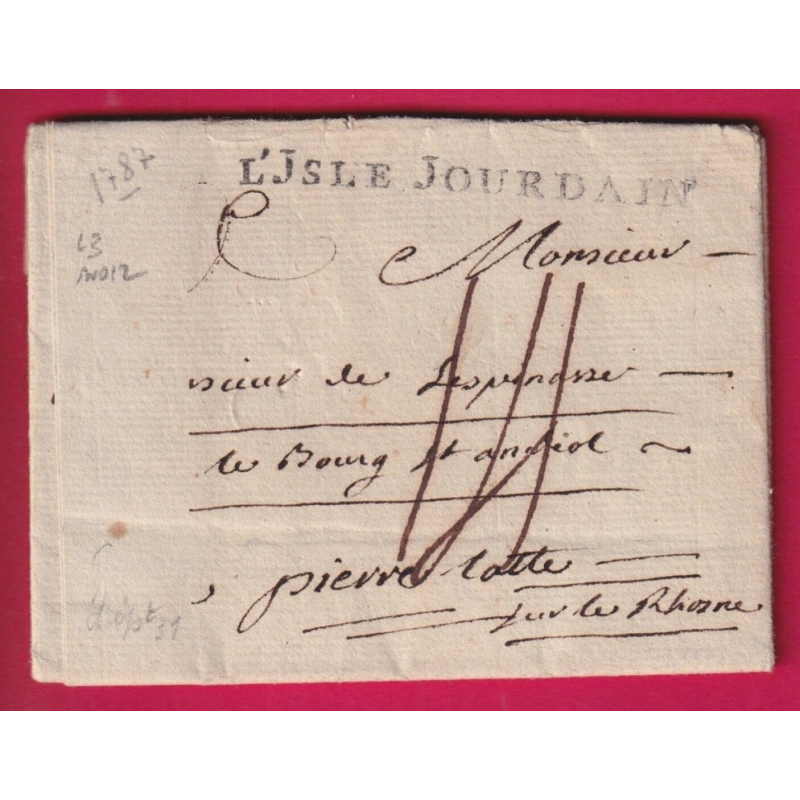 1787
L'JSLE JOURDAIN
L3
NOIR
Monsieur
sieur de Lespinasse
le Bourg St andiol
pierre latte
sur le Rhosne
Dépt 31